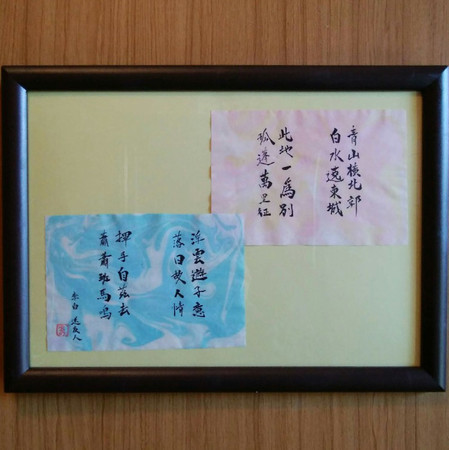 青山橫北郭
白水遶東城
此地一爲別
孤蓬萬里征
浮雲遊子意
落日故人情
揮手自茲去
蕭蕭班馬鳴
李白 送友人